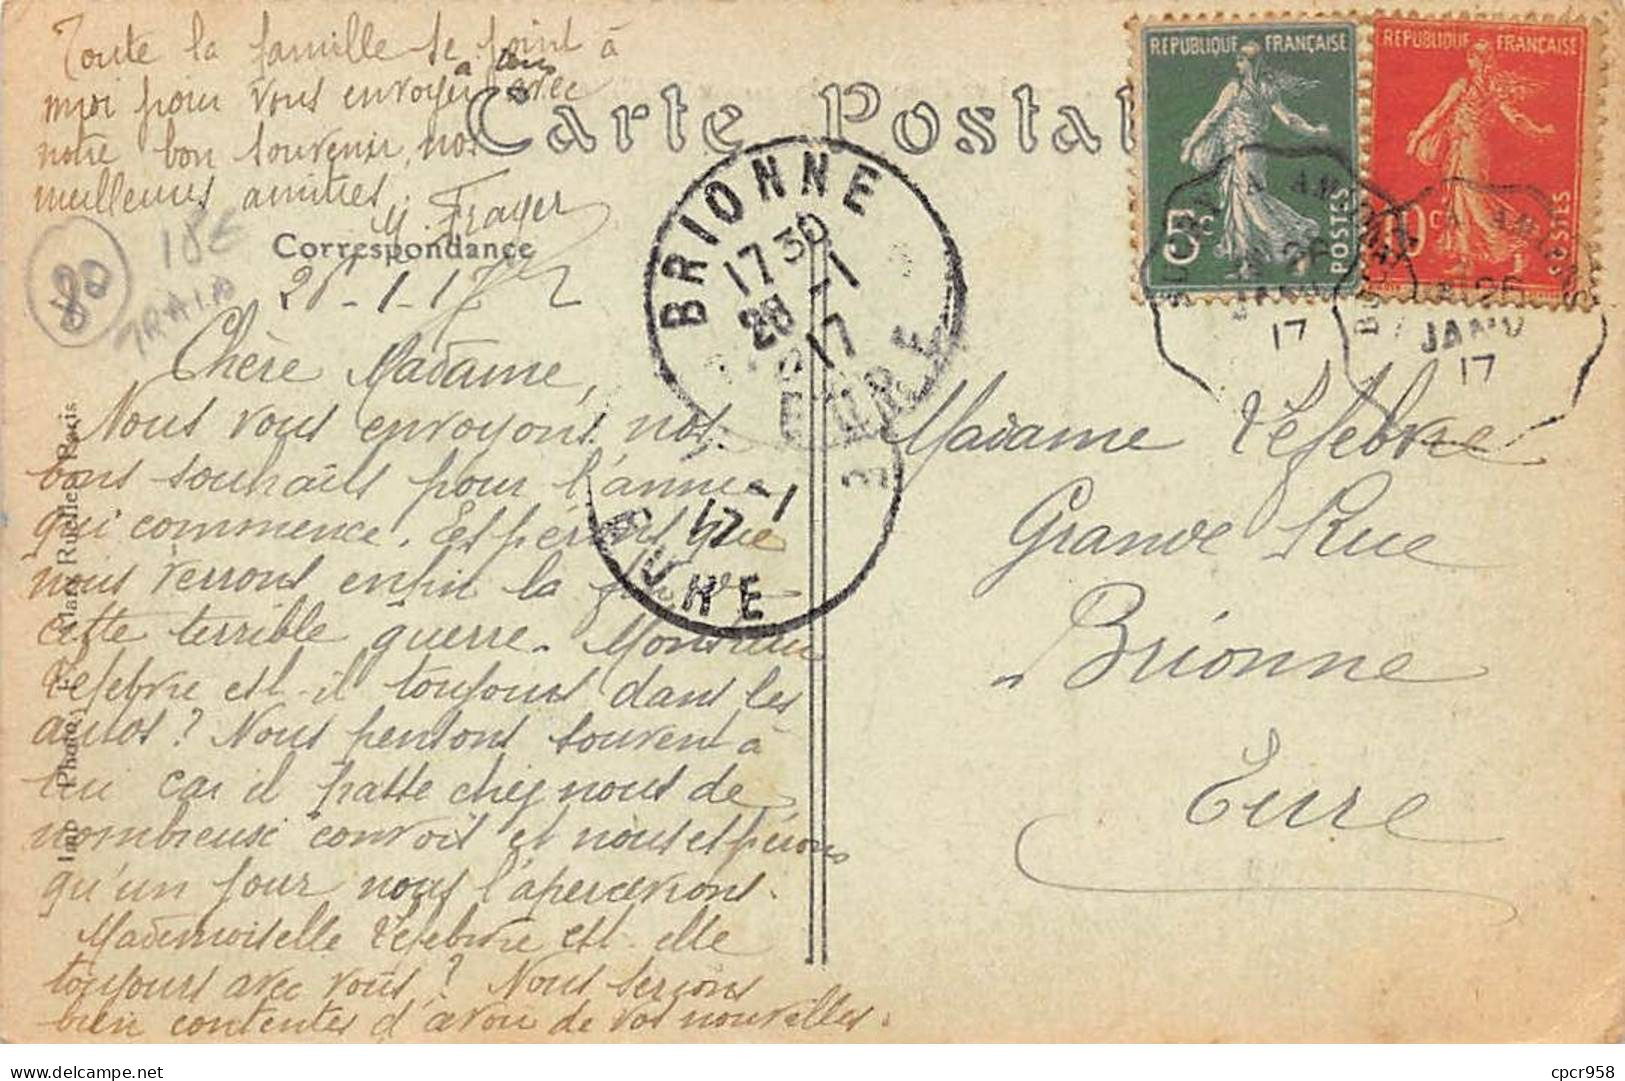 Toute la famille se joint à
moi pour vous envoyer à tous avec
notre bon souvenir, nos
meilleures amitiés.
Y. Frager
Carte Postal
REPUBLIQUE FRANÇAISE
5c
POSTES
REPUBLIQUE FRANÇAISE
10c
POSTES
26 JANV 17
26 JANV 17
BRIONNE
17 30
28 -1
17
EURE
17 -1
80
18E
TRAIN
Correspondance
26-1-17
Chère Madame,
Nous vous envoyons nos
bons souhaits pour l'année
qui commence. Espérons que
nous verrons enfin la fin de
cette terrible guerre. Monsieur
Lefebvre est-il toujours dans les
autos? Nous pensons souvent à
lui car il passe chez nous de
nombreux convois et nous espérons
qu'un jour nous l'apercevrons.
Mademoiselle Lefebvre est-elle
toujours avec vous? Nous serions
bien contentes d'avoir de vos nouvelles.
Madame Lefebvre
Grande Rue
Brionne
Eure
Imp. Photo. Marc Ruelle, Paris
cpcr958